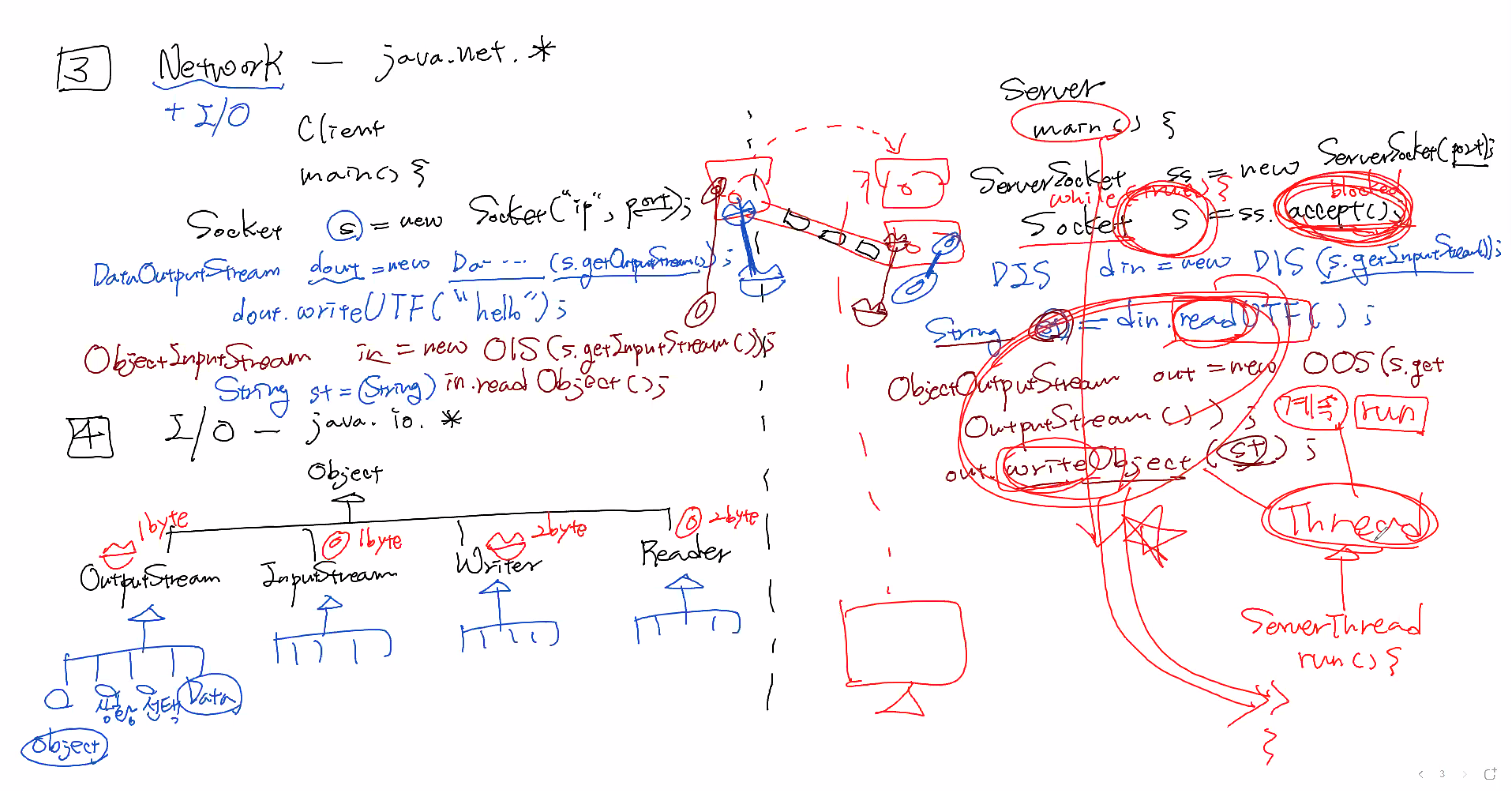 3 Network — java.net.*
+ I/O
Client
main() {
Socket s = new Socket("ip", port);
DataOutputStream dout = new Da.... (s.getOutputStream());
dout.writeUTF("hello");
ObjectInputStream in = new OIS(s.getInputStream());
String st = (String) in.readObject();
4 I/O — java.io.*
Object
1byte
1byte
2byte
2byte
OutputStream
InputStream
Writer
Reader
용도
선택
Data
Object
Server
main() {
ServerSocket ss = new ServerSocket(port);
while(true) {
blocked
Socket s = ss.accept();
DIS din = new DIS(s.getInputStream());
String st = din.readUTF();
ObjectOutputStream out = new OOS(s.get
OutputStream());
out.writeObject(st);
계속 run
Thread
ServerThread
run() {
}
}
3